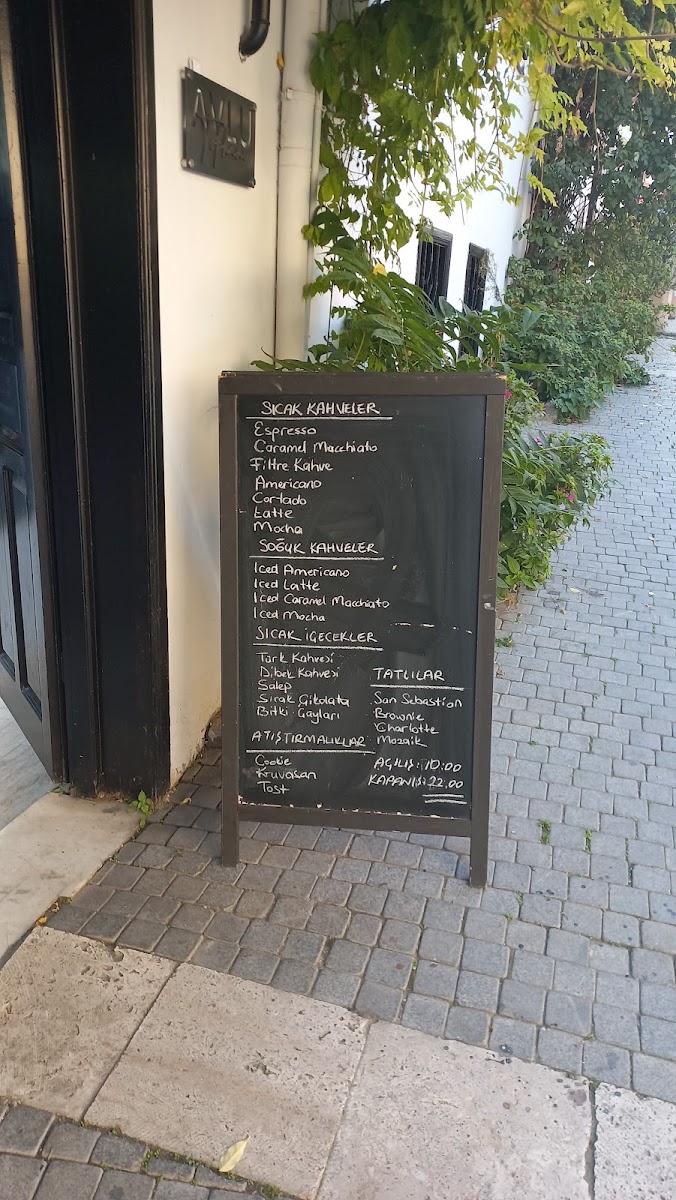 AVLU
SICAK KAHVELER
Espresso
Caramel Macchiato
Filtre Kahve
Americano
Cortado
Latte
Mocha
SOĞUK KAHVELER
Iced Americano
Iced Latte
Iced Caramel Macchiato
Iced Mocha
SICAK İÇECEKLER
Türk Kahvesi
Dibek Kahvesi
Salep
Sıcak Çikolata
Bitki Çayları
TATLILAR
San Sebastian
Brownie
Charlotte
Mozaik
ATIŞTIRMALIKLAR
Cookie
Kruvasan
Tost
AÇILIŞ: 10:00
KAPANIŞ: 22.00